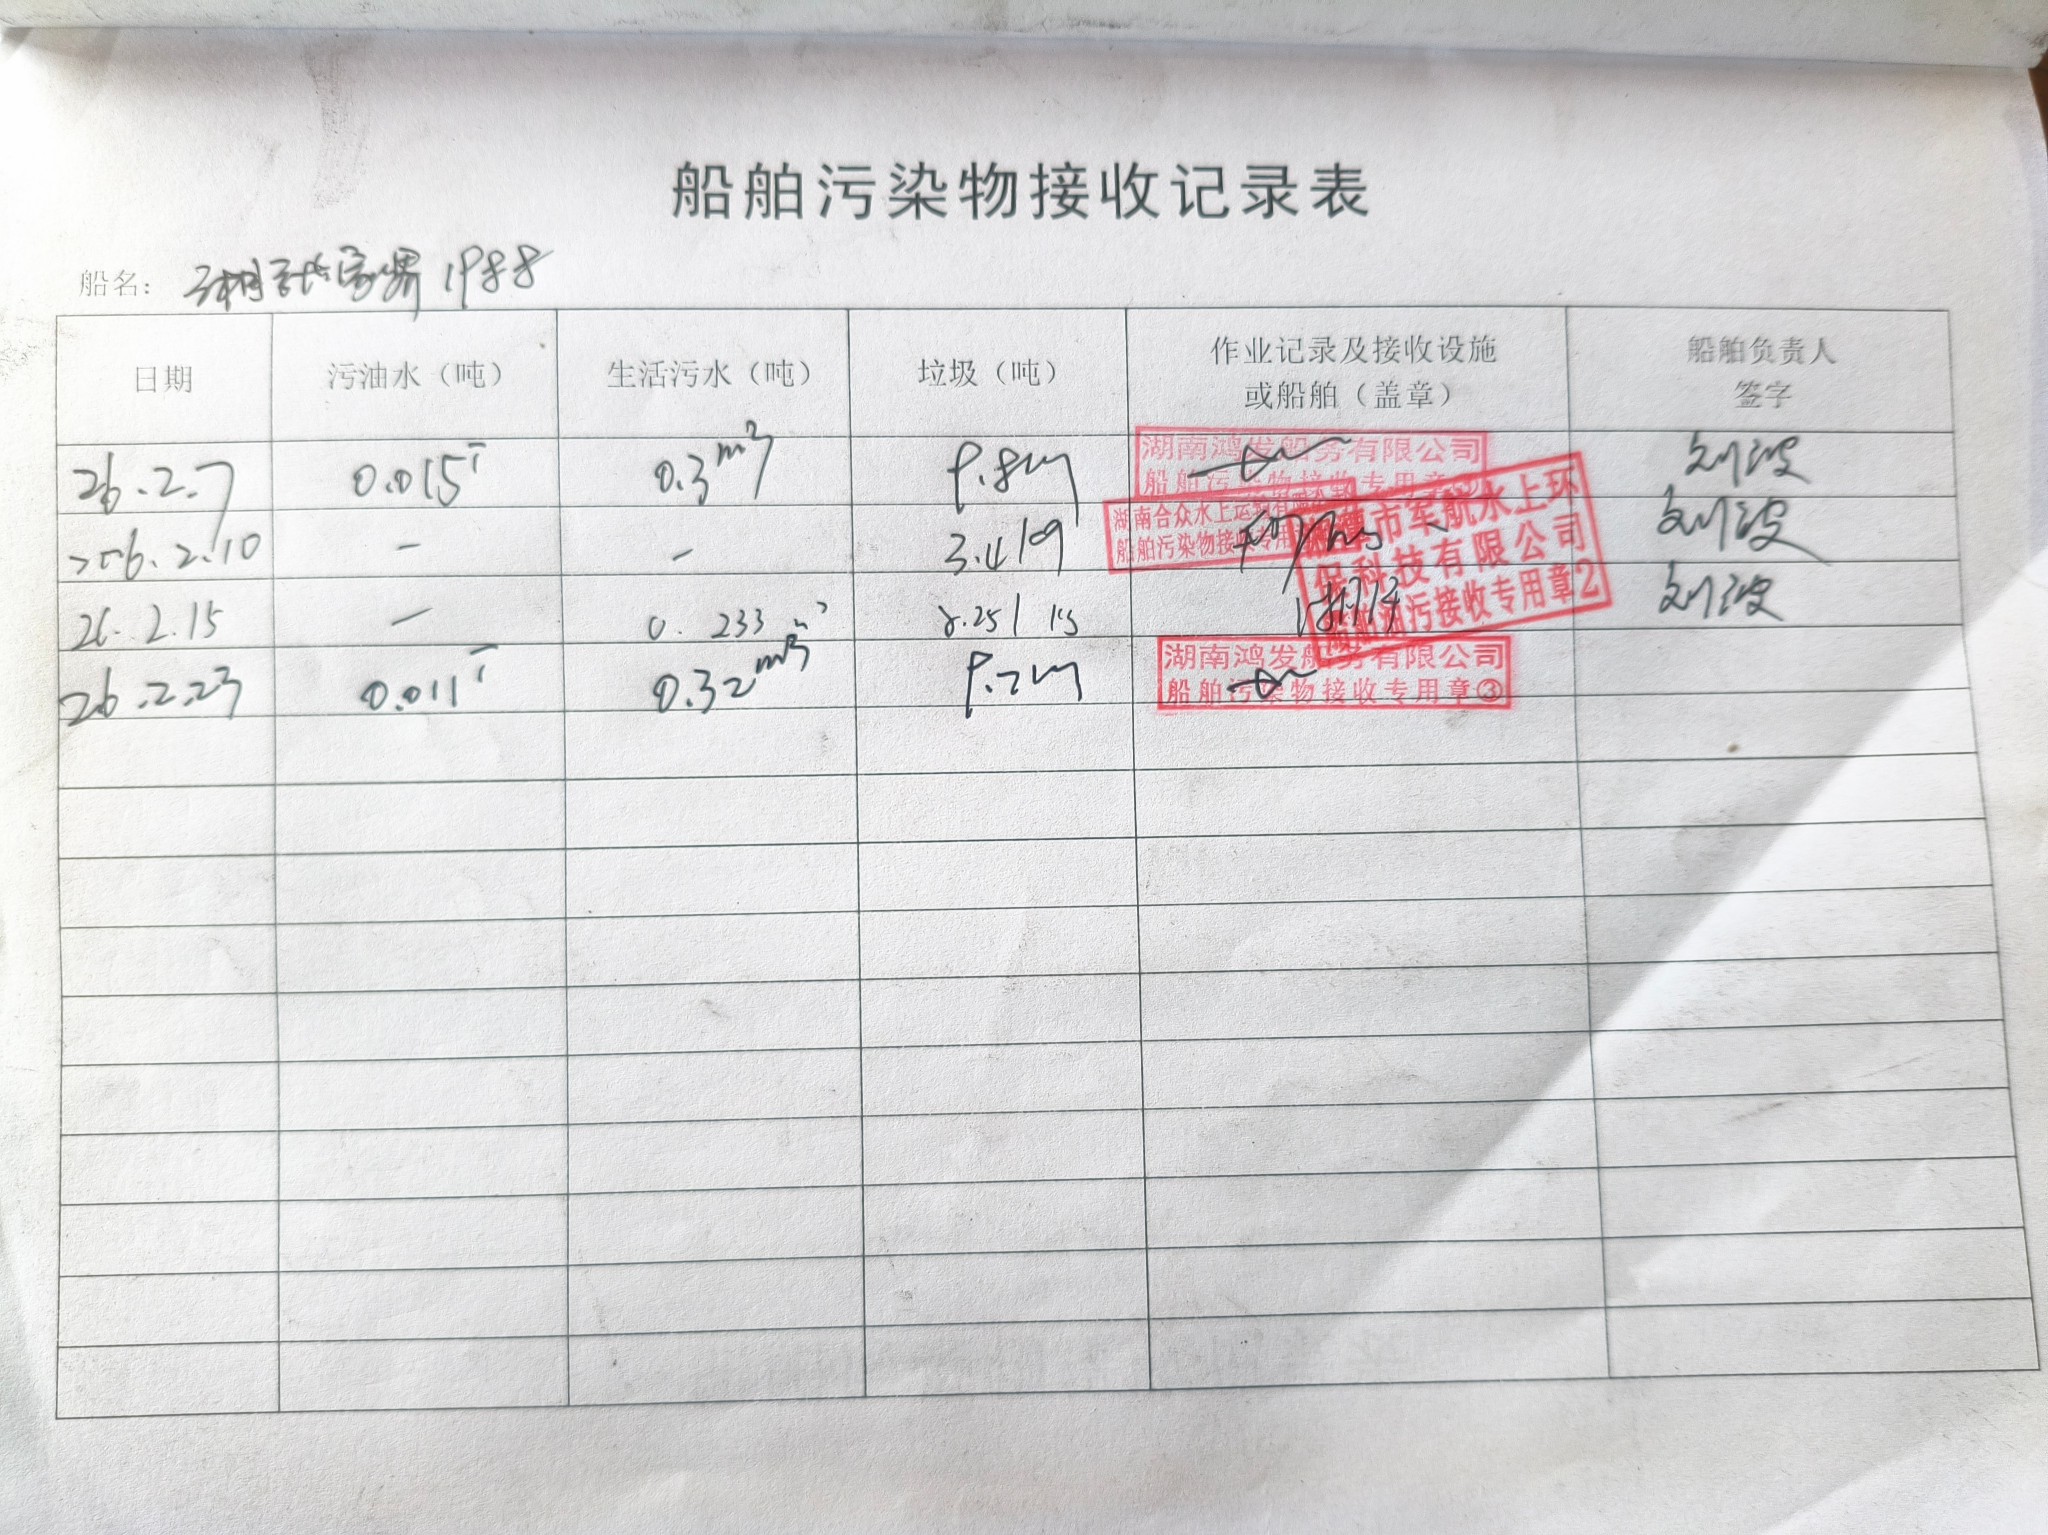 船舶污染物接收记录表
船名： 湘张家界 1988
日期 污油水（吨） 生活污水（吨） 垃圾（吨） 作业记录及接收设施 或船舶（盖章） 船舶负责人 签字
26.2.7 0.015T 0.3m³ 9.8 湖南鸿发船务有限公司 船舶污染物接收专用章 刘波
2026.2.10 — — 3.4 湖南合众水上运 有限 船舶污染物接收专用 刘波
26.2.15 — 0.233 m³ 市军航水上环 保科技有限公司 船舶油污接收专用章2 刘波
26.2.23 0.011T 0.32m³ 9.2 湖南鸿发船务有限公司 船舶污染物接收专用章③